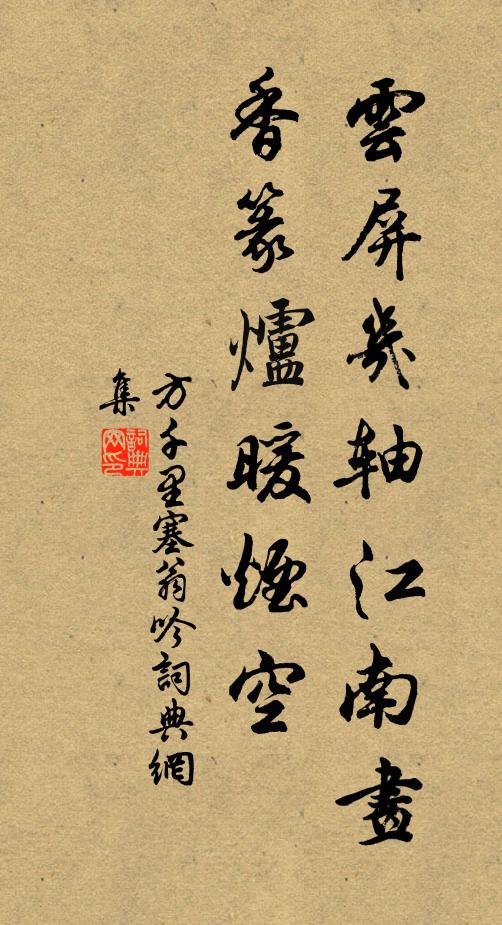 雲屏幾軸江南畫
香篆爐暖煙空
方千里塞翁吟詞典網
集
詞典網印